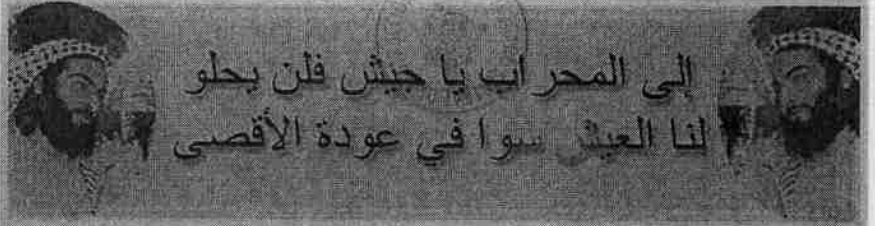 إلى المحراب يا جيش فلن يحلو
لنا العيش سوا في عودة الأقصى